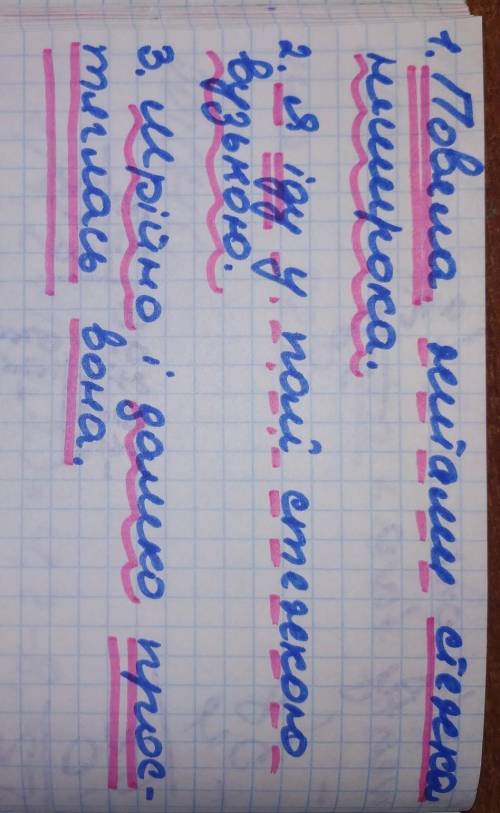 1. Повела житами стежка
неширока.
2. Я іду у полі стежкою
вузькою.
3. Мрійно і далеко прос-
тяглась вона.